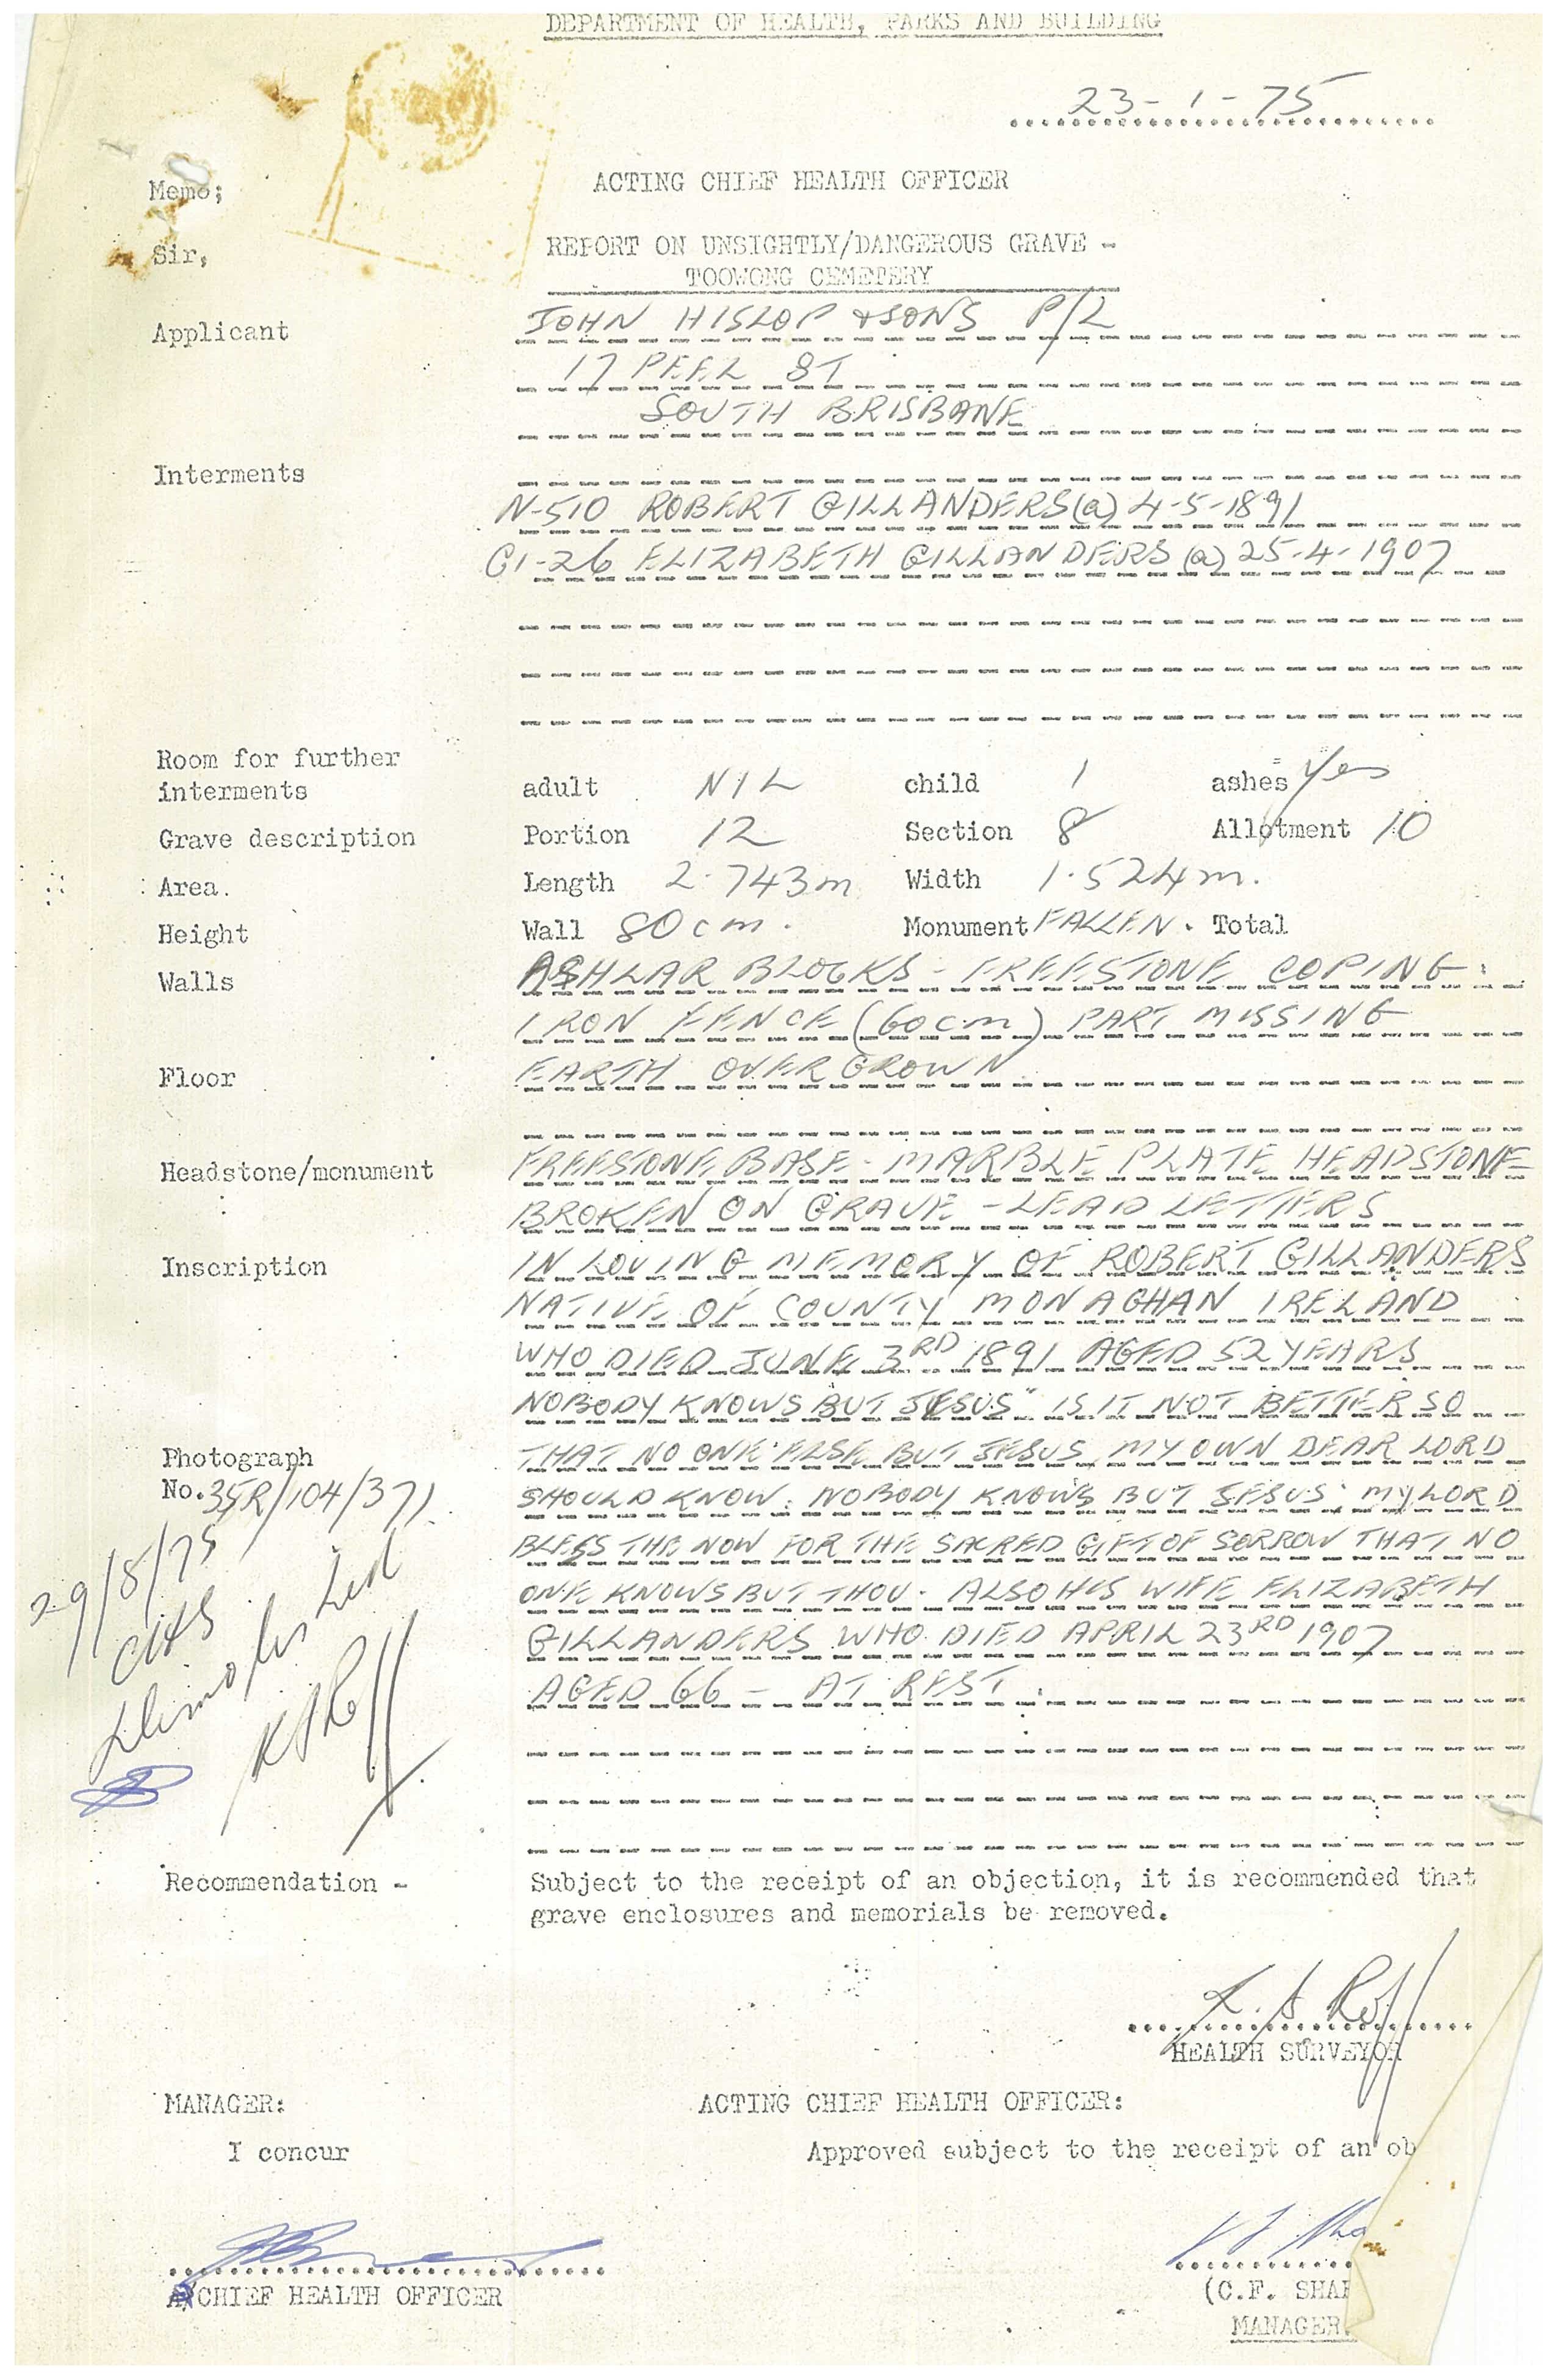 DEPARTMENT OF HEALTH, PARKS AND BUILDING
23-1-75
Memo; ACTING CHIEF HEALTH OFFICER
Sir, REPORT ON UNSIGHTLY/DANGEROUS GRAVE -
TOOWONG CEMETERY
Applicant JOHN HISLOP & SONS P/L
17 PEEL ST
SOUTH BRISBANE
Interments
N-510 ROBERT GILLANDERS (a) 4-5-1891
C1-26 ELIZABETH GILLANDERS (a) 25-4-1907
Room for further
interments adult NIL child 1 ashes Yes
Grave description Portion 12 Section 8 Allotment 10
Area. Length 2.743m Width 1.524m.
Height Wall 80cm. Monument FALLEN. Total
Walls ASHLAR BLOCKS - FREESTONE COPING.
IRON FENCE (60cm) PART MISSING
Floor EARTH OVERGROWN
Headstone/monument FREESTONE BASE - MARBLE PLATE HEADSTONE
BROKEN ON GRAVE - LEAD LETTERS
Inscription IN LOVING MEMORY OF ROBERT GILLANDERS
NATIVE OF COUNTY MONAGHAN IRELAND
WHO DIED JUNE 3RD 1891 AGED 52 YEARS
NOBODY KNOWS BUT JESUS" IS IT NOT BETTER SO
Photograph THAT NO ONE ELSE BUT JESUS, MY OWN DEAR LORD
No. 35R/104/371. SHOULD KNOW. NOBODY KNOWS BUT JESUS' MY LORD
BLESS THE NOW FOR THE SACRED GIFT OF SORROW THAT NO
ONE KNOWS BUT THOU. ALSO HIS WIFE ELIZABETH
GILLANDERS WHO DIED APRIL 23RD 1907
AGED 66 - AT REST.
29/8/75
Recommendation - Subject to the receipt of an objection, it is recommended that
grave enclosures and memorials be removed.
K. A Roff
HEALTH SURVEYOR
MANAGER: ACTING CHIEF HEALTH OFFICER:
I concur Approved subject to the receipt of an ob
CHIEF HEALTH OFFICER (C.F. SHA
MANAGER.